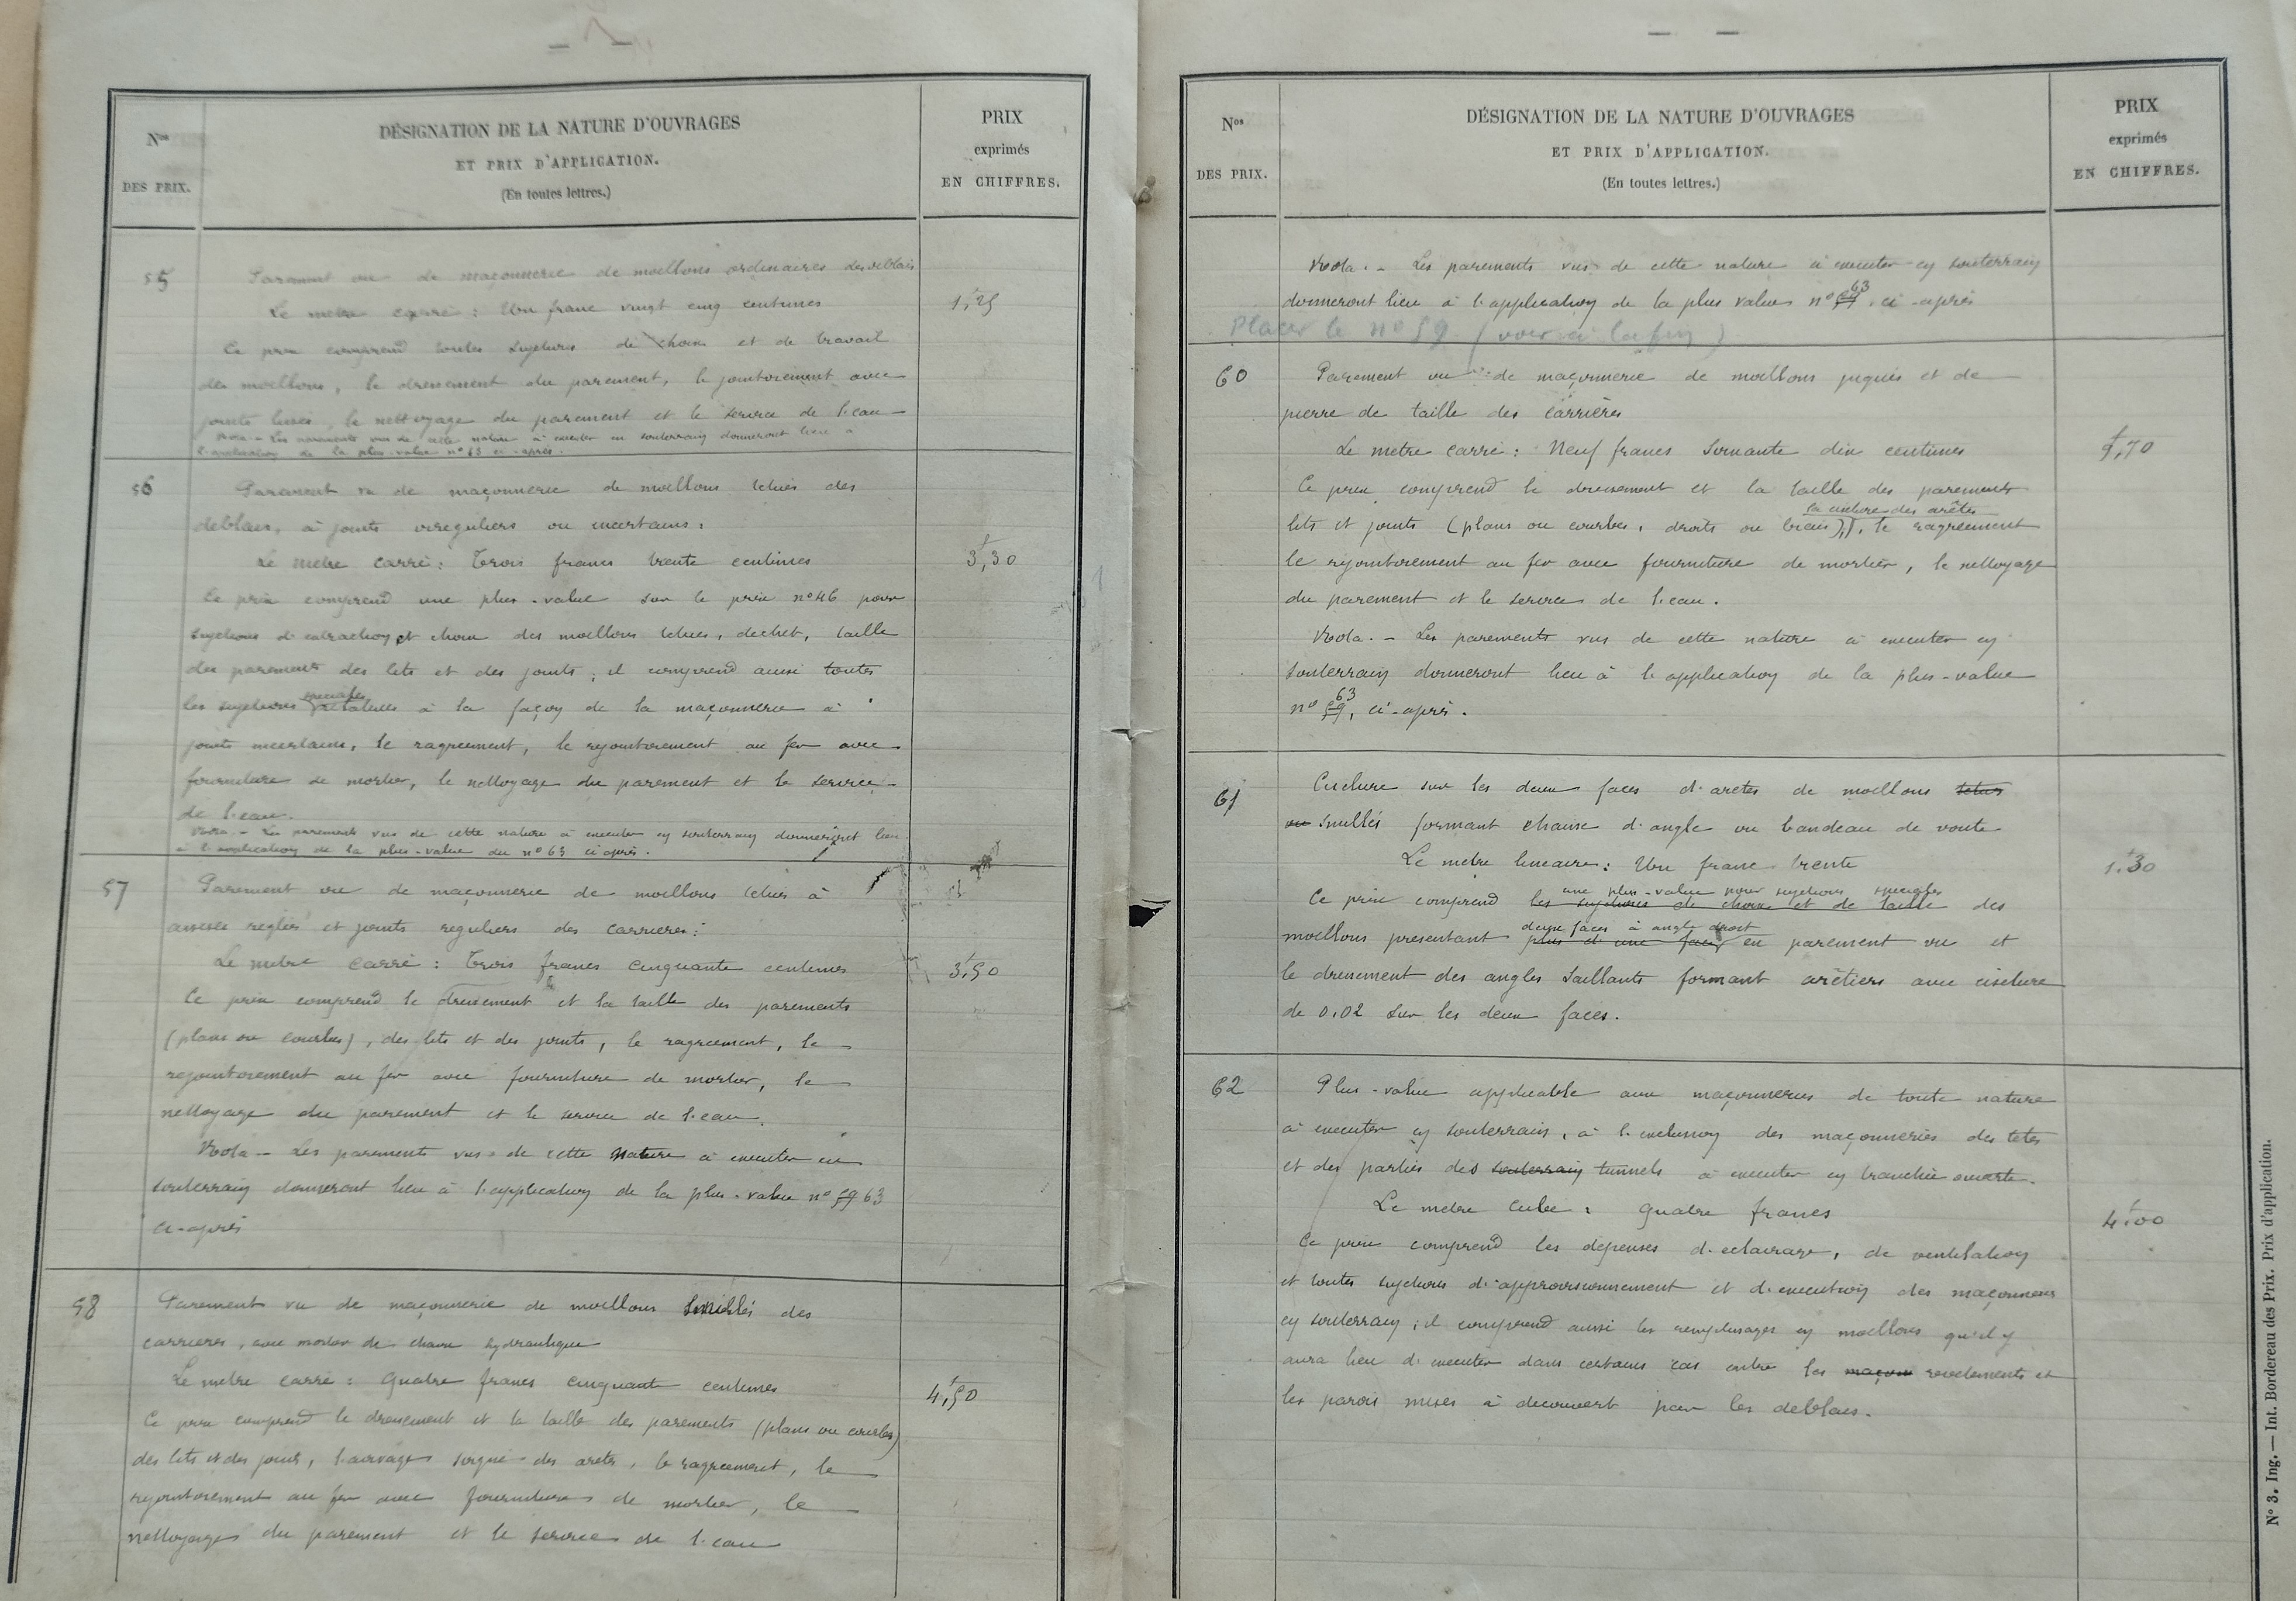 Nos
DES PRIX.
DÉSIGNATION DE LA NATURE D'OUVRAGES
ET PRIX D'APPLICATION.
(En toutes lettres.)
PRIX
exprimés
EN CHIFFRES.
55
Parement vu de maçonnerie de moellons ordinaires des déblais
Le metre carré : Un franc vingt cinq centimes
1f,25
Ce prix comprend toutes sujetions de choix et de travail
des moellons, le dressement du parement, le jointoiement avec
joints lissés, le nettoyage du parement et le service de l'eau
Nota. - Les parements vus de cette nature à executer en souterrain donneront lieu à
l'application de la plus-value n° 63 ci-après.
56
Parement vu de maçonnerie de moellons tétués des
déblais, à joints irreguliers ou incertains :
Le metre carré : Trois francs trente centimes
3f,30
Ce prix comprend une plus-value sur le prix n° 46 pour
sujetions d'extraction et choix des moellons tétués, dechet, taille
des parements des lits et des joints ; il comprend aussi toutes
speciales
les sujetions relatives à la façon de la maçonnerie à
joints incertains, le ragreement, le rejointoiement au fer avec
fourniture de mortier, le nettoyage du parement et le service
de l'eau.
Nota. - Les parements vus de cette nature à executer en souterrain donneront lieu
à l'application de la plus-value du n° 63 ci après.
57
Parement vu de maçonnerie de moellons tétués à
assises reglées et joints reguliers des carrieres :
Le metre carré : Trois francs cinquante centimes
3f,50
Ce prix comprend le dressement et la taille des parements
(plans ou courbes), des lits et des joints, le ragreement, le
rejointoiement au fer avec fourniture de mortier, le
nettoyage du parement et le service de l'eau.
Nota - Les parements vus de cette nature à executer en
souterrain donneront lieu à l'application de la plus-value n° 59 63
ci-après
58
Parement vu de maçonnerie de moellons smillés des
carrieres, avec mortier de chaux hydraulique
Le metre carré : Quatre francs cinquante centimes
4f,50
Ce prix comprend le dressement et la taille des parements (plans ou courbes)
des lits et des joints, l'avivage soigné des aretes, le ragreement, le
rejointoiement au fer avec fourniture de mortier, le
nettoyage du parement et le service de l'eau
Nos
DES PRIX.
DÉSIGNATION DE LA NATURE D'OUVRAGES
ET PRIX D'APPLICATION.
(En toutes lettres.)
PRIX
exprimés
EN CHIFFRES.
Nota. - Les parements vus de cette nature à executer en souterrain
63
donneront lieu à l'application de la plus value n° 59, ci-après
Placer le n° 59 (voir à la fin)
60
Parement vu de maçonnerie de moellons piqués et de
pierre de taille des carrières
Le metre carré : Neuf francs soixante dix centimes
9f,70
Ce prix comprend le dressement et la taille des parements
la ciselure des arêtes
lits et joints (plans ou courbes, droits ou biais), le ragreement
le rejointoiement au fer avec fourniture de mortier, le nettoyage
du parement et le service de l'eau.
Nota. - Les parements vus de cette nature à executer en
souterrain donneront lieu à l'application de la plus-value
63
n° 59, ci-après.
61
Ciselure sur les deux faces d'aretes de moellons tetués
ou smillés formant chaine d'angle ou bandeau de voute
Le metre lineaire : Un franc trente
1f.30
une plus-value pour sujetions speciales
Ce prix comprend les sujetions de choix et de taille des
deux faces à angle droit
moellons presentant plus d'une face en parement vu et
le dressement des angles saillants formant arêtiers avec ciselure
de 0.02 sur les deux faces.
62
Plus-value applicable aux maçonneries de toute nature
à executer en souterrain, à l'exclusion des maçonneries des têtes
et des parties des souterrain tunnels à executer en tranchée ouverte.
Le metre cube : Quatre francs
4f.00
Ce prix comprend les depenses d'eclairage, de ventilation
et toutes sujetions d'approvisionnement et d'execution des maçonneries
en souterrain ; il comprend aussi les remplissages en moellons qu'il y
aura lieu d'executer dans certains cas entre les maçon revetements et
les parois mises à decouvert par les deblais.
N° 3. Ing. — Int. Bordereau des Prix. Prix d'application.